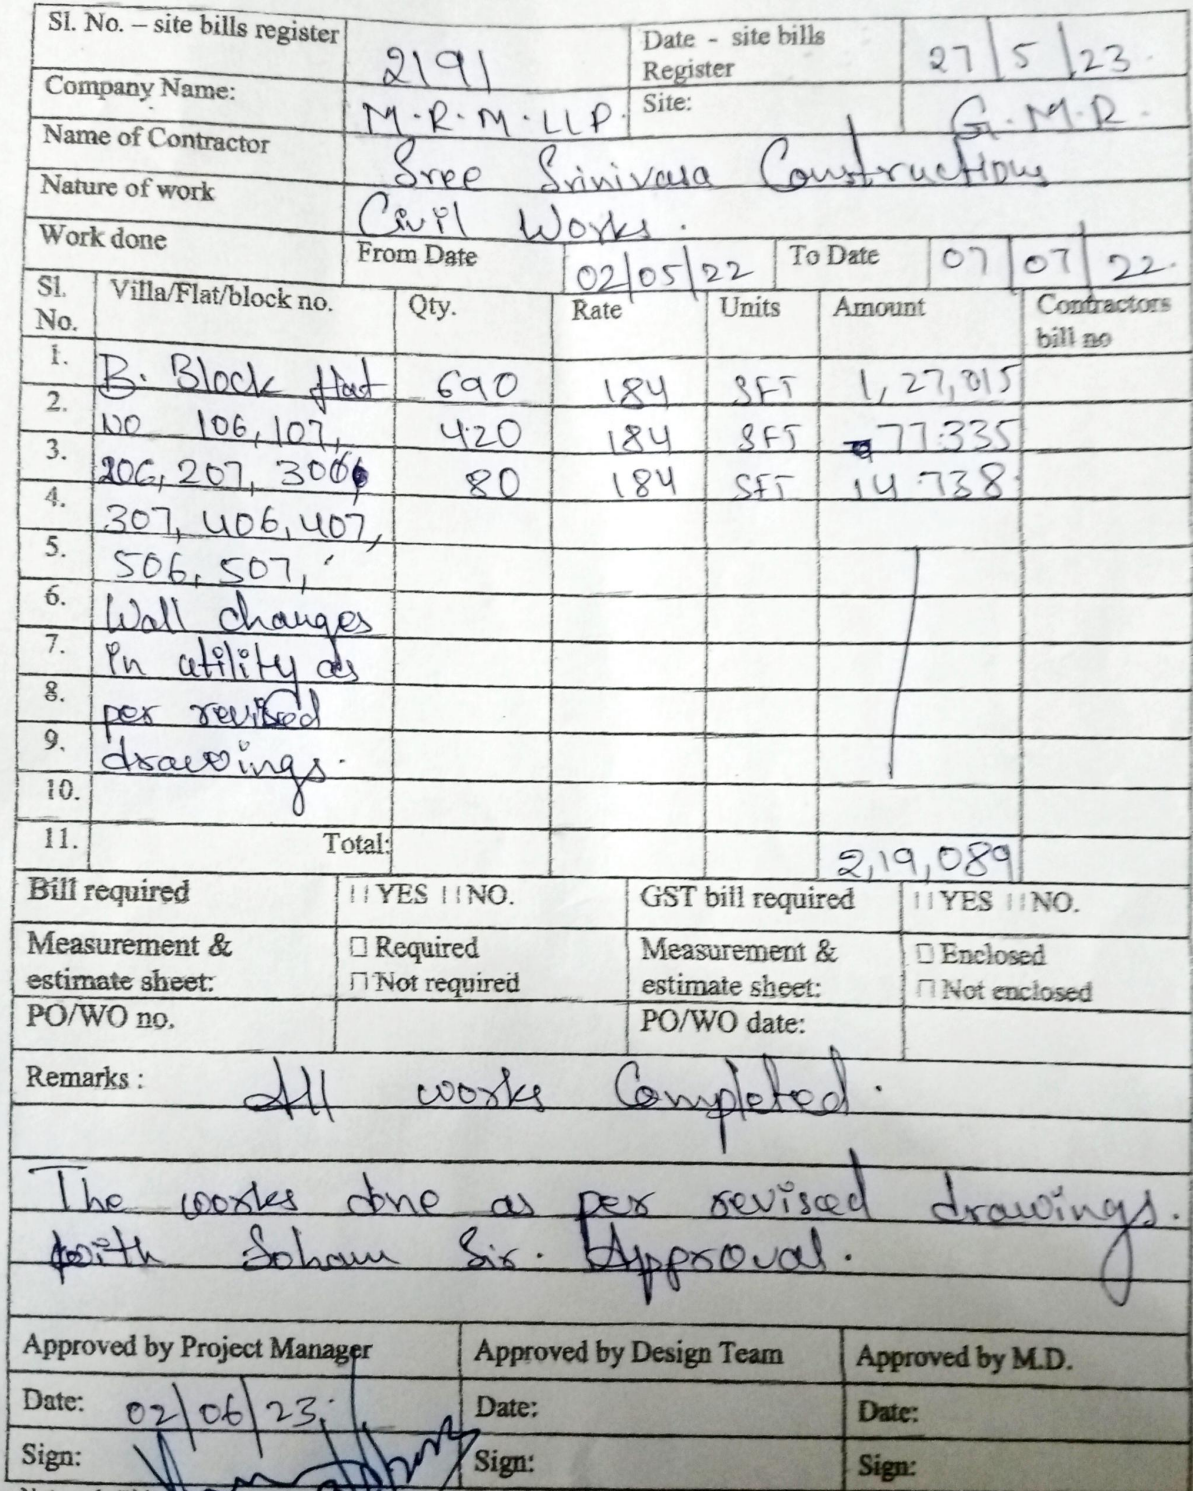 Sl. No. – site bills register 2191 Date - site bills Register 27/5/23.
Company Name: M.R.M.LLP. Site: G.M.R.
Name of Contractor Sree Srinivasa Constructions
Nature of work Civil Works.
Work done From Date 02/05/22 To Date 07/07/22.
Sl. No. Villa/Flat/block no. Qty. Rate Units Amount Contractors bill no
1. B. Block flat 690 184 SFT 1,27,015
2. NO 106, 107, 420 184 SFT 77.335
3. 206, 207, 306, 80 184 SFT 14.738
4. 307, 406, 407,
5. 506, 507,
6. Wall changes
7. in utility as
8. per revised
9. drawings.
10.
11. Total: 2,19,089
Bill required YES NO. GST bill required YES NO.
Measurement & estimate sheet: □ Required □ Not required Measurement & estimate sheet: □ Enclosed □ Not enclosed
PO/WO no. PO/WO date:
Remarks : All works Completed.
The works done as per revised drawings.
with Soham Sir. Approval.
Approved by Project Manager Approved by Design Team Approved by M.D.
Date: 02/06/23, Date: Date:
Sign: Sign: Sign: